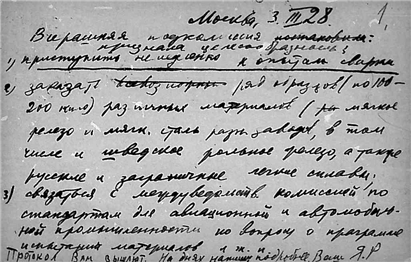 Москва, 3. III 28.
1
Вчерашняя подкомиссия постановил:
признала целесообразность:
1) приступить немедленно к опытам сварки
2) заказать ряд образцов (по 100-
200 кило) различных материалов (мягкое
железо и мягк. сталь разн. заводов, в том
числе и шведское рольное железо, а также
русские и заграничные легкие сплавы.
3) связаться с междуведомств. комиссией по
стандартам для авиационной и автомобиль-
ной промышленности по вопросу о программе
испытания материалов и т. п.
Протокол Вам вышлют. На днях напишу подробнее Ваш Я.Р